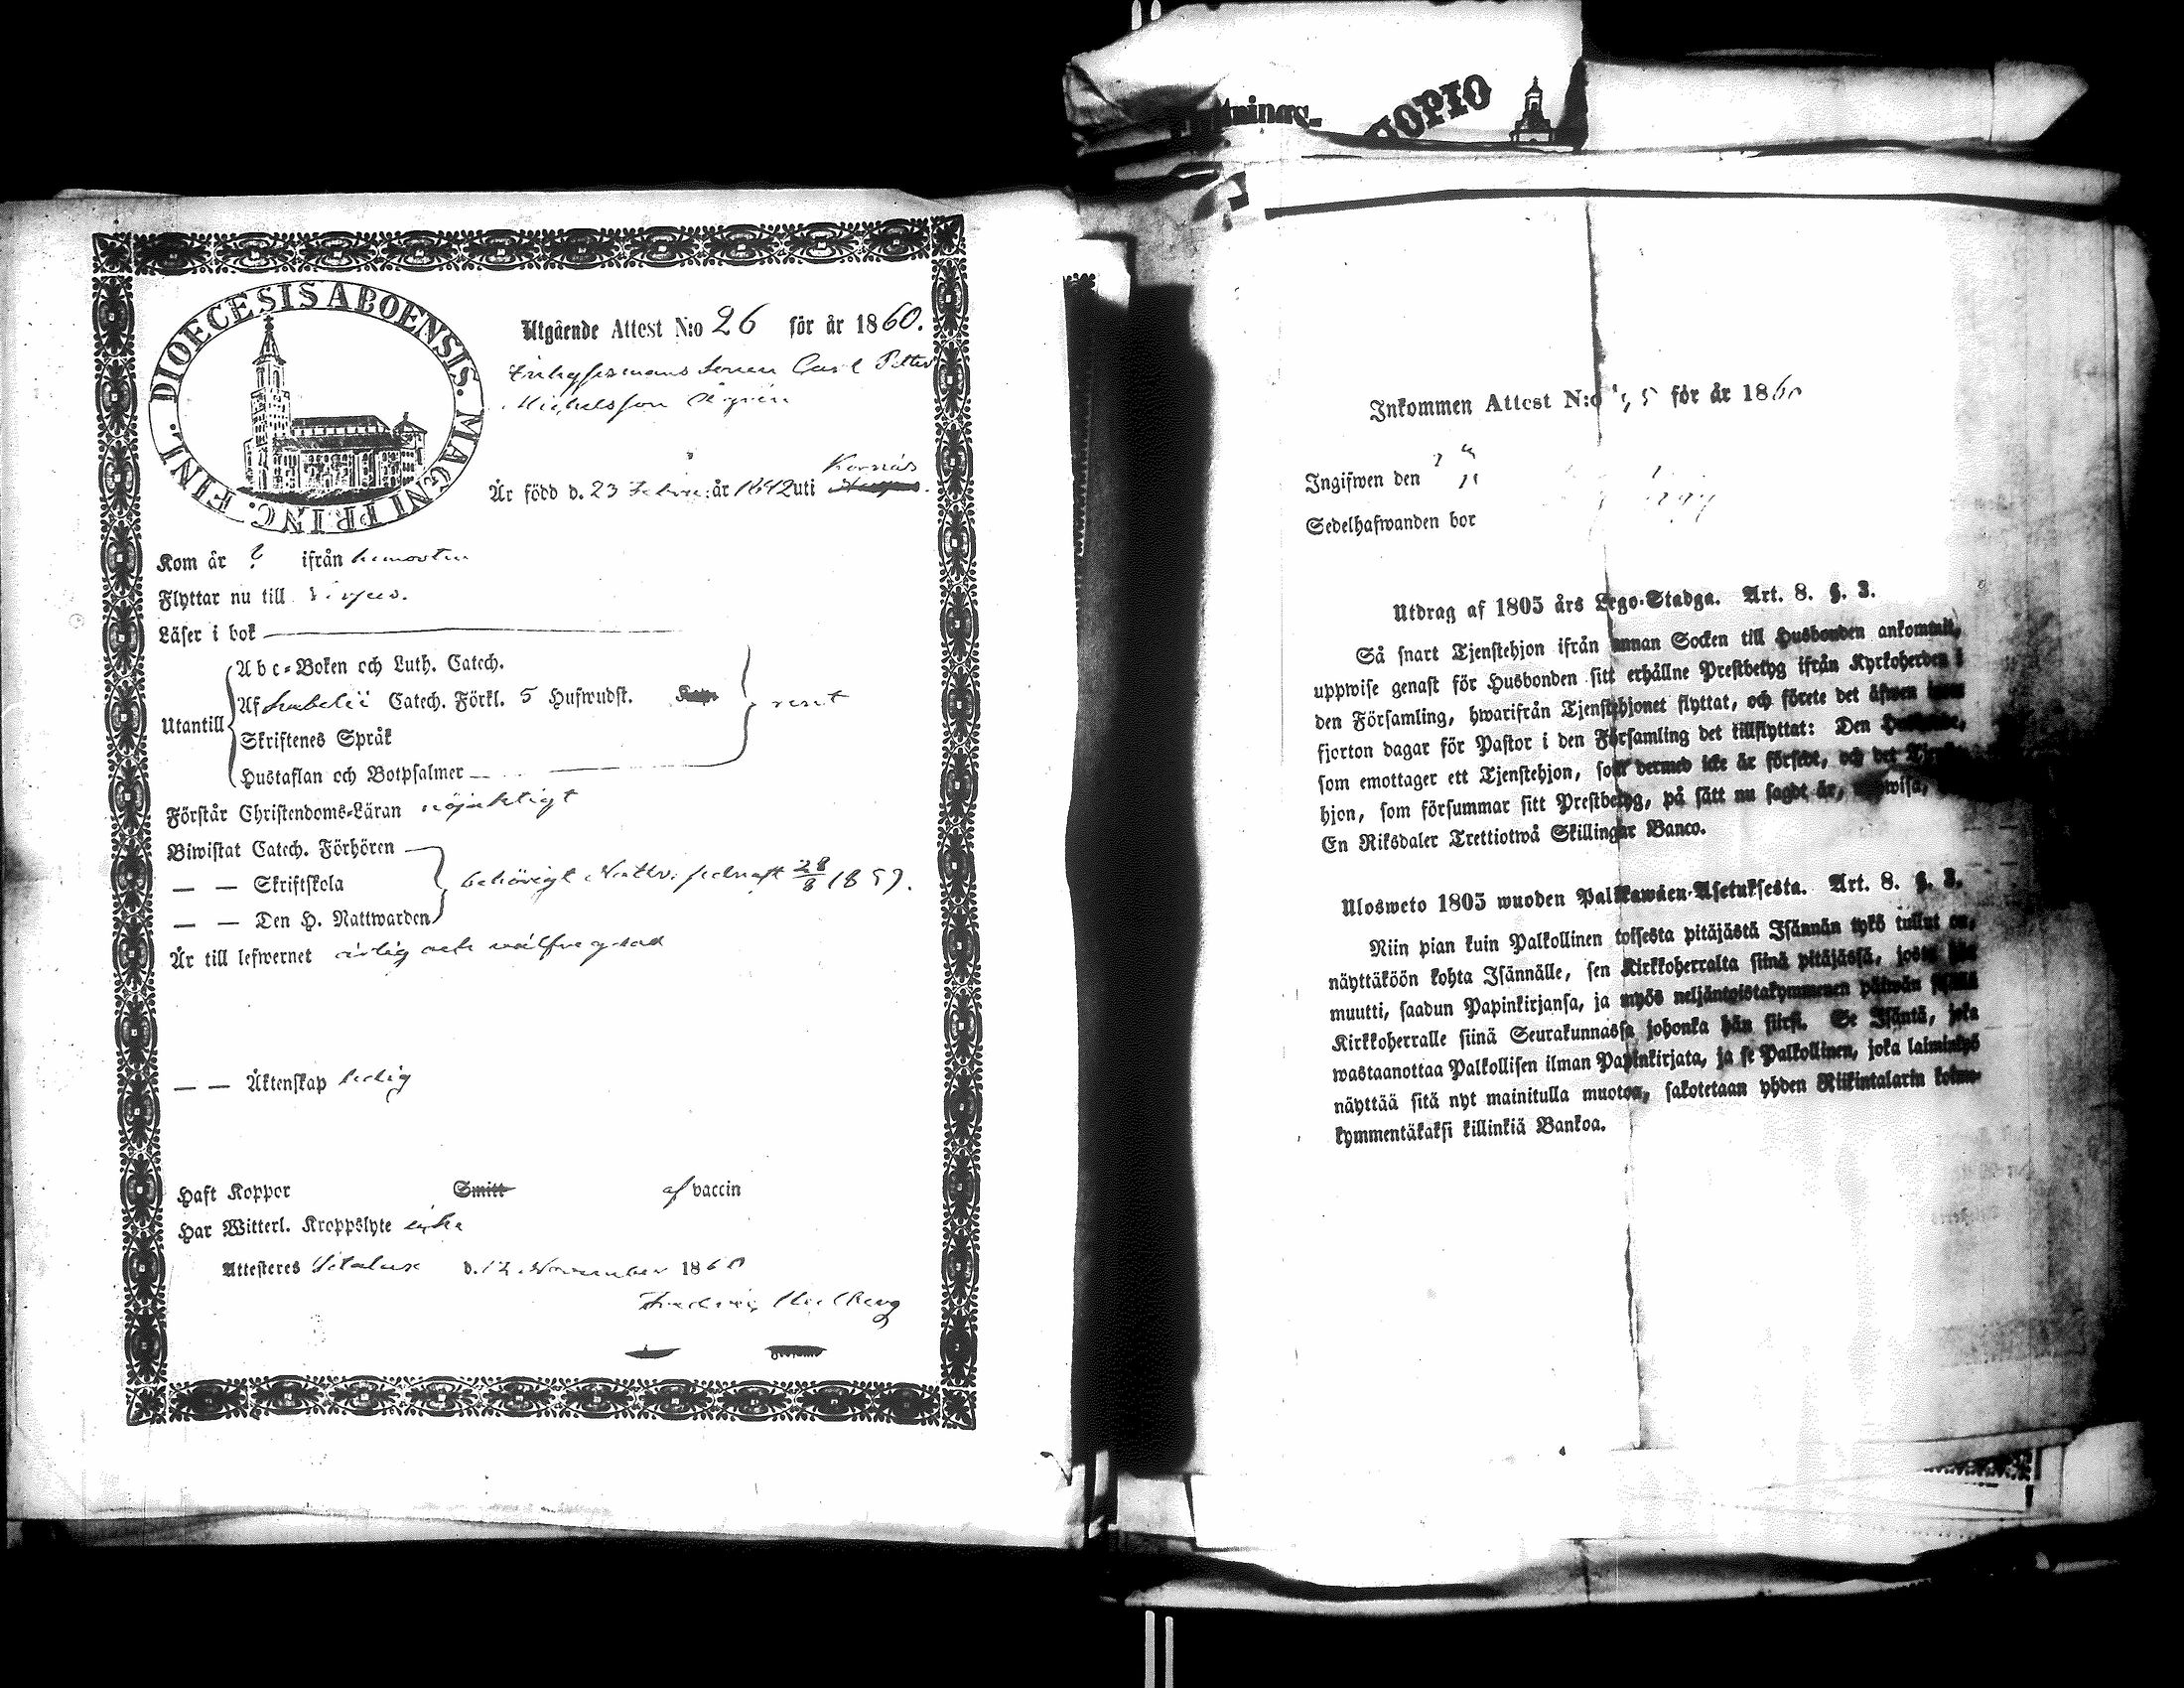 DIOECESIS ABOENSIS. MAGNI PRINC. FINL.
Utgående Attest N:o 26 för år 1860.
sonen Carl Petter
Michelsson
Är född d. 23 Febru: år 1842 uti Kornäs
Kom år ? ifrån hemorten
Flyttar nu till
Läser i bok
Utantill
Abc-Boken och Luth. Catech.
Af Catech. Förkl. 5 Hufwudst.
Skriftenes Språk
Hustaflan och Botpsalmer
rent
Förstår Christendoms-Läran nöjaktigt
Biwistat Catech. Förhören
— — Skriftskola
— — Den H. Nattwarden
behörigt Nattv: sednast 28/8 1859.
Är till lefwernet ärlig och välfrejdad
— — Äktenskap ledig
Haft Koppor Smitt af vaccin
Har Witterl. Kroppslyte icke
Attesteres d. 12 November 1860
tnings-
UOPIO
Inkommen Attest N:o 5 för år 1860
Ingifwen den
Sedelhafwanden bor
Utdrag af 1805 års Lego-Stadga. Art. 8. §. 3.
Så snart Tjenstehjon ifrån annan Socken till Husbonden ankommit,
uppwise genast för Husbonden sitt erhållne Prestbetyg ifrån Kyrkoherden i
den Församling, hwarifrån Tjenstehjonet flyttat, och förete det äfwen
fjorton dagar för Pastor i den Församling det tillflyttat: Den
som emottager ett Tjenstehjon, som dermed icke är försedt, och det
hjon, som försummar sitt Prestbetyg, på sätt nu sagdt är,
En Riksdaler Trettiotwå Skillingar Banco.
Ulosweto 1805 wuoden Palkkawäen-Asetuksesta. Art. 8. §. 3.
Niin pian kuin Palkollinen toisesta pitäjästä Isännän tykö tullut on,
näyttäköön kohta Isännälle, sen Kirkkoherralta siinä pitäjässä, josta hän
muutti, saadun Papinkirjansa, ja myös neljäntoistakymmenen päiwän
Kirkkoherralle siinä Seurakunnassa johonka hän siirsi. Se Isäntä, joka
wastaanottaa Palkollisen ilman Papinkirjata, ja se Palkollinen, joka laiminlyö
näyttää sitä nyt mainitulla muotoa, sakotetaan yhden Riikintalarin kolme-
kymmentäkaksi killinkiä Bankoa.